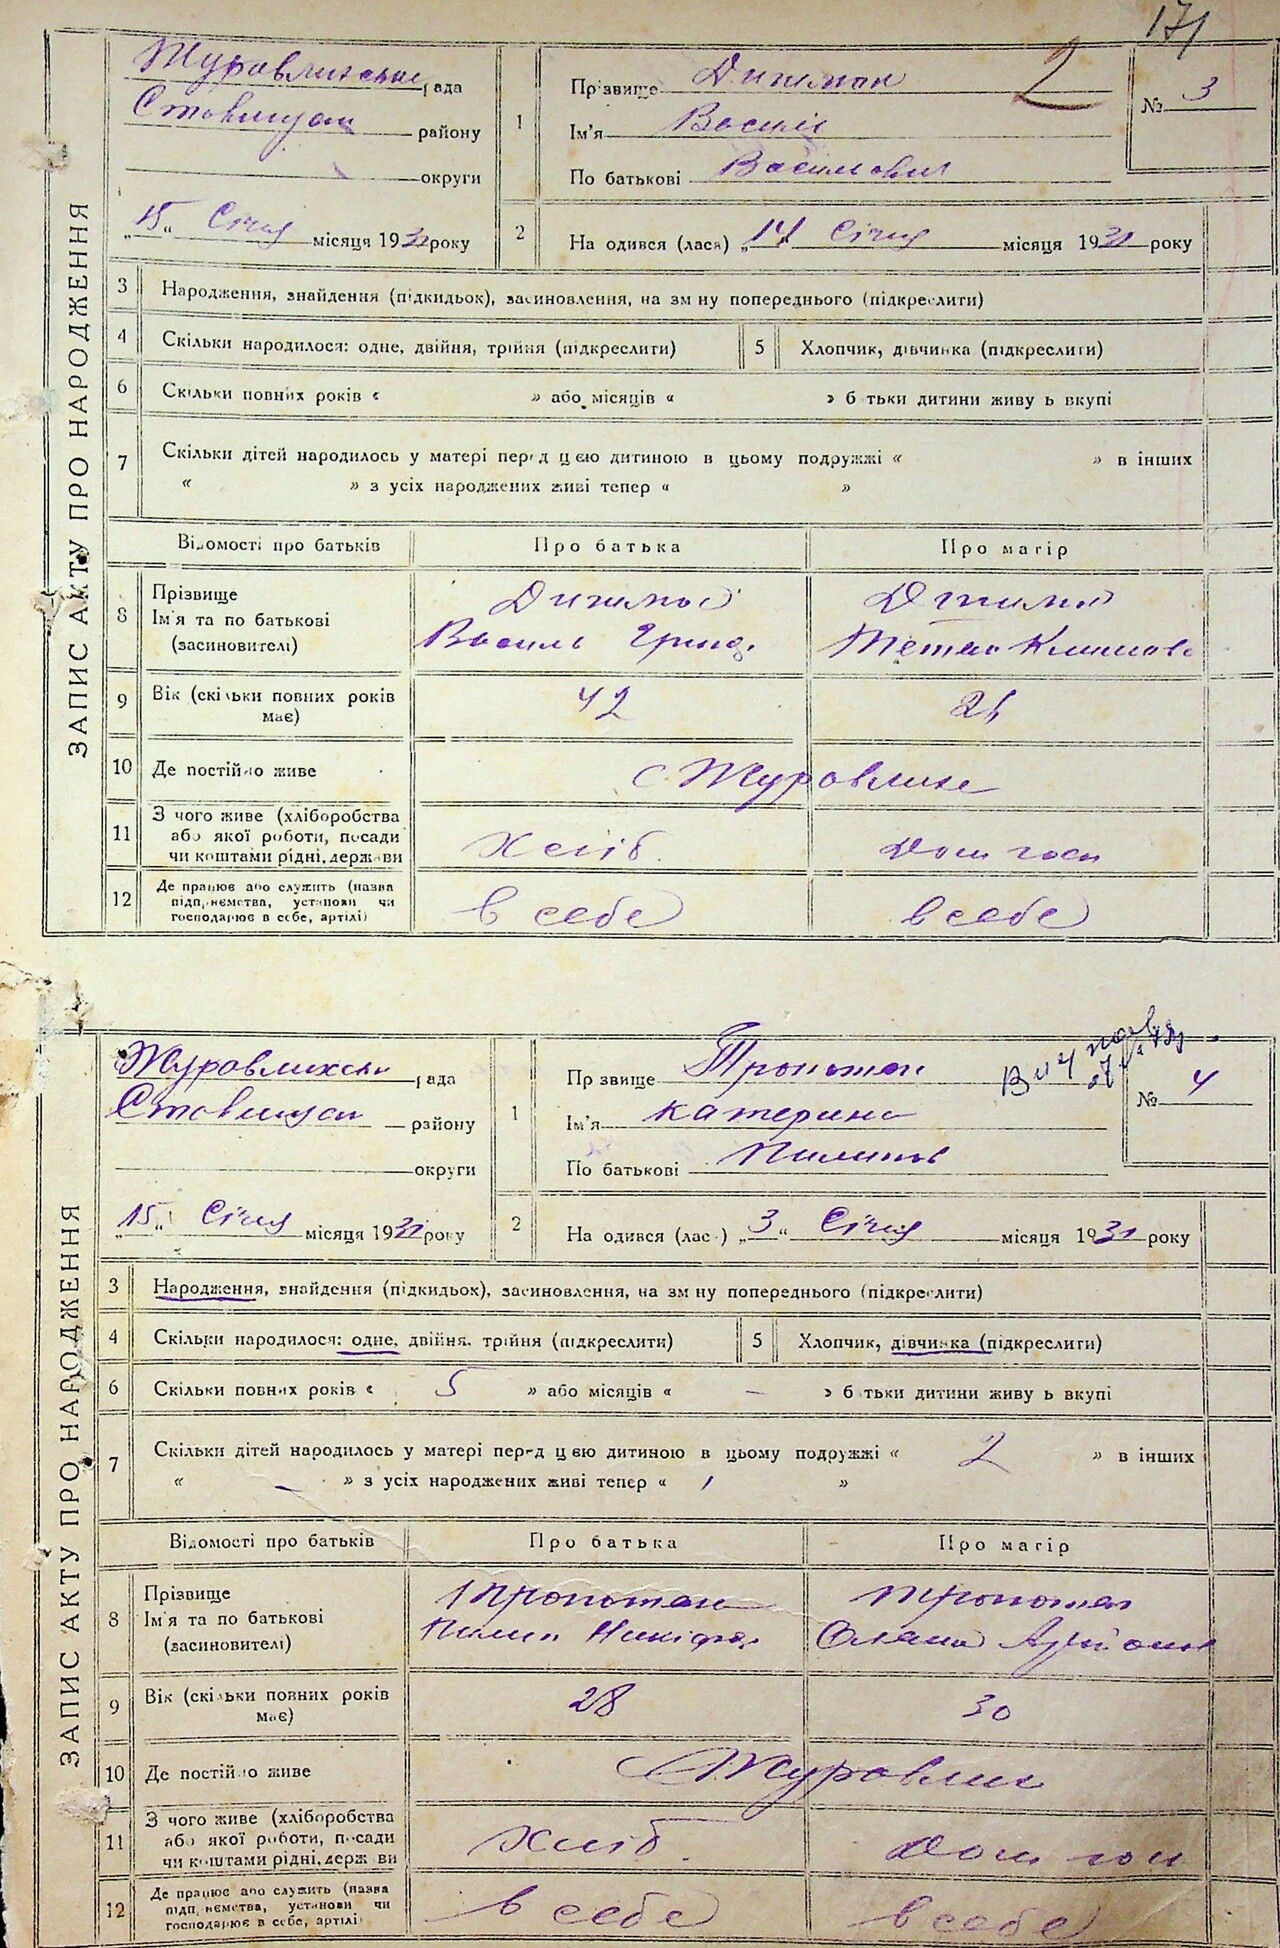 171
ЗАПИС АКТУ ПРО НАРОДЖЕННЯ
Журавлихська рада
Ставищан району
округи
„15“ Січня місяця 1931 року
1
Прізвище
2
Ім'я Василь
По батькові Васильович
№ 3
2
На одився (лася) „14 Січня місяця 1931 року
3 Народження, знайдення (підкидьок), засиновлення, на зм ну попереднього (підкреслити)
4 Скільки народилося: одне, двійня, трійня (підкреслити) 5 Хлопчик, дівчинка (підкреслити)
6 Скільки повних років « » або місяців « » б тьки дитини живу ь вкупі
7 Скільки дітей народилось у матері перед цією дитиною в цьому подружжі « » в інших
« » з усіх народжених живі тепер « »
Відомості про батьків Про батька Про матір
8 Прізвище
Ім'я та по батькові Василь
(засиновителі)
9 Вік (скільки повних років 42
має)
10 Де постійно живе с. Журовлиха
11 З чого живе (хліборобства
або якої роботи, посади Хліб. Дом госп
чи коштами рідні, держави
12 Де працює або служить (назва
підприємства, установи чи в себе в себе
господарює в себе, артілі)
ЗАПИС АКТУ ПРО НАРОДЖЕННЯ
Журовлихськ рада
Ставищан району
округи
„15“ Січня місяця 1931 року
1
Пр звище
Ім'я Катерина
По батькові Пилипов
№ 4
2
На одився (лас ) „3“ Січня місяця 1931 року
3 Народження, знайдення (підкидьок), засиновлення, на зм ну попереднього (підкреслити)
4 Скільки народилося: одне, двійня, трійня (підкреслити) 5 Хлопчик, дівчинка (підкреслити)
6 Скільки повних років « 5 » або місяців « – » б тьки дитини живу ь вкупі
7 Скільки дітей народилось у матері перед цією дитиною в цьому подружжі « 2 » в інших
« – » з усіх народжених живі тепер « 1 »
Відомості про батьків Про батька Про матір
8 Прізвище
Ім'я та по батькові Пилип Никіфор.
(засиновителі)
9 Вік (скільки повних років 28 30
має)
10 Де постійно живе с. Журовлих
11 З чого живе (хліборобства
або якої роботи, посади Хліб. Дом гос
чи коштами рідні, держ ви
12 Де працює або служить (назва
підп, ємства, установи чи в себе в себе
господарює в себе, артілі)